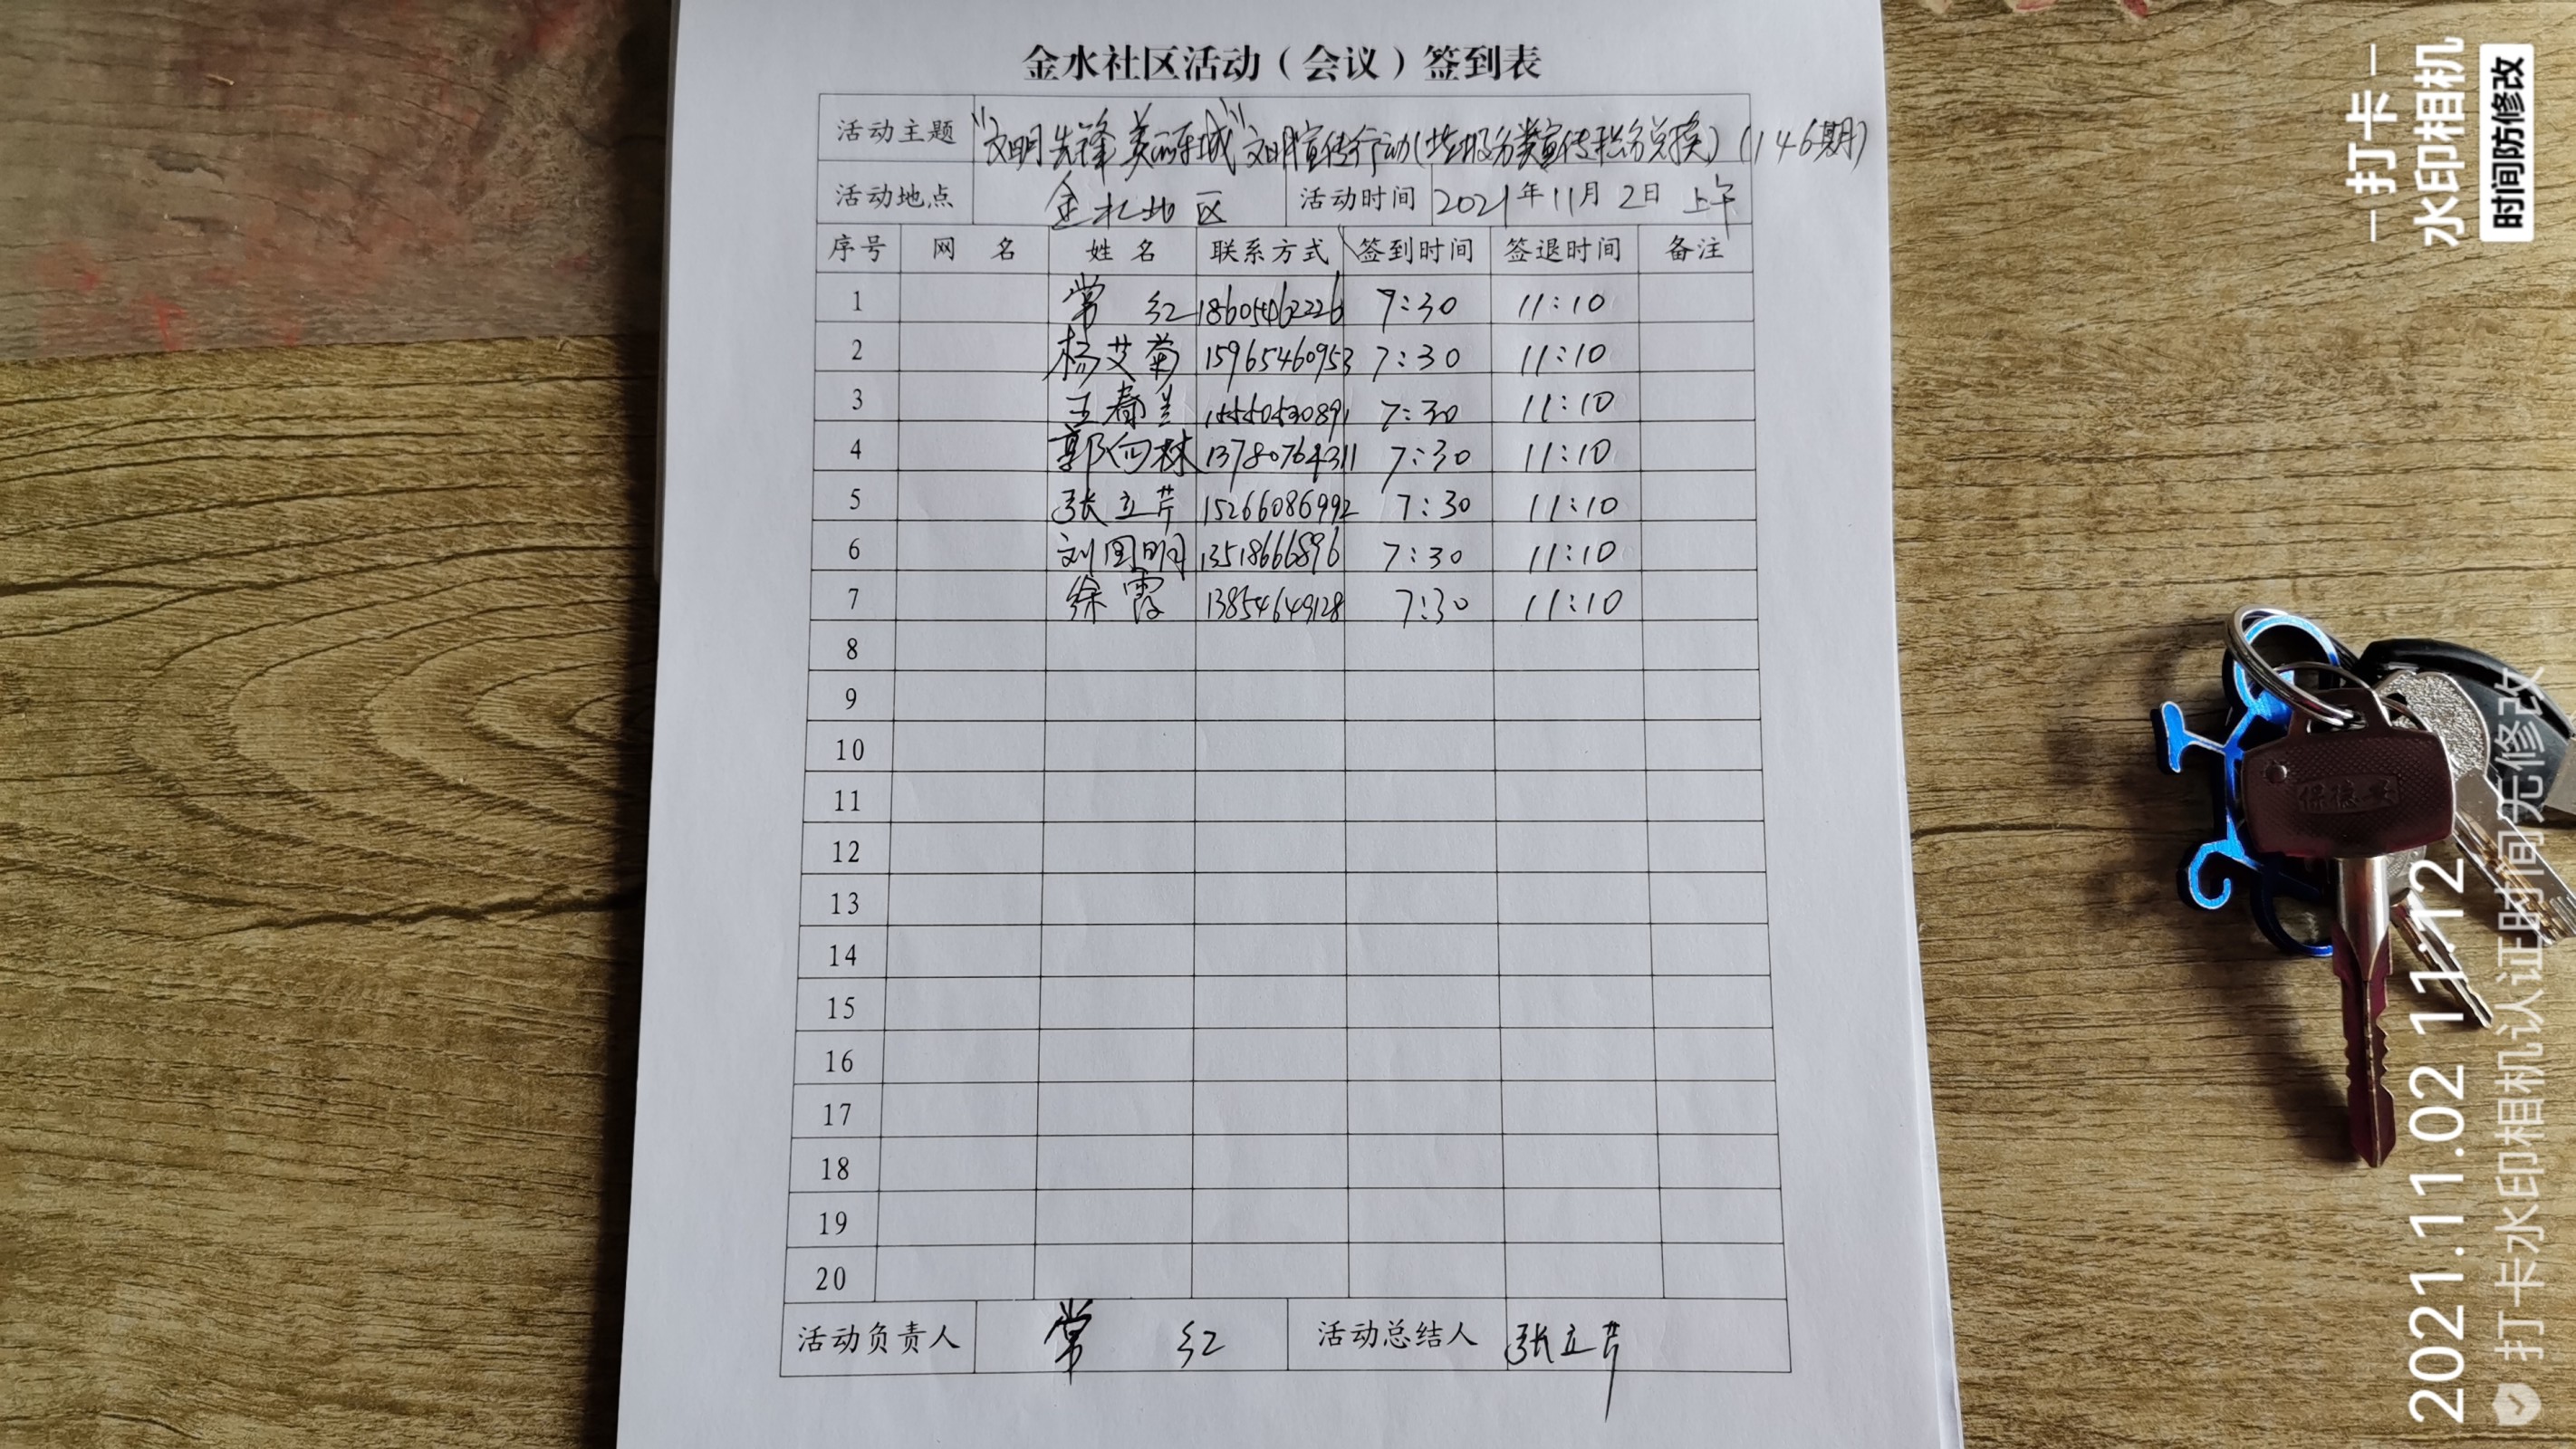 金水社区活动（会议）签到表
活动主题 "文明先锋 美丽东城"文明宣传行动(垃圾分类宣传积分兑换)(146期)
活动地点 金水北区 活动时间 2021年11月2日 上午
序号 网 名 姓 名 联系方式 签到时间 签退时间 备注
1 常 红 18605462226 7:30 11:10
2 杨艾菊 15965460953 7:30 11:10
3 王春兰 7:30 11:10
4 郭向林 13780764311 7:30 11:10
5 张立芹 15266086992 7:30 11:10
6 刘国明 13518666896 7:30 11:10
7 徐霞 13854649128 7:30 11:10
8
9
10
11
12
13
14
15
16
17
18
19
20
活动负责人 常 红 活动总结人 张立芹
打卡
水印相机
时间防修改
2021.11.02 11:12
打卡水印相机认证时间无修改
保德安